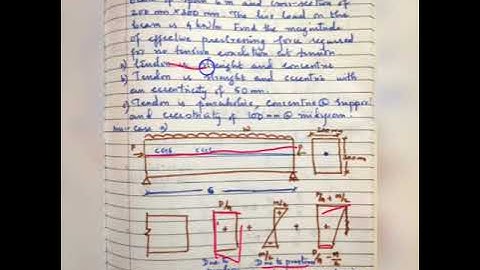 beam of span 6 m and cross-section of
200 mm × 300 mm. The live load on the
beam is 4 kN/m Find the magnitude
of effective prestressing force required
for no tension condition at
a) Tendon is straight and concentric
b) Tendon is straight and eccentric with
an eccentricity of 50 mm.
c) Tendon is parabolic, concentric @ support
and eccentricity of 100 mm @ midspan
case a)
W
200 mm
P
P
CGS
CGC
300 mm
6
P/A
M/Z
P/A + M/Z
+
+
+
M/Z
P/A - M/Z
Due to
Due to